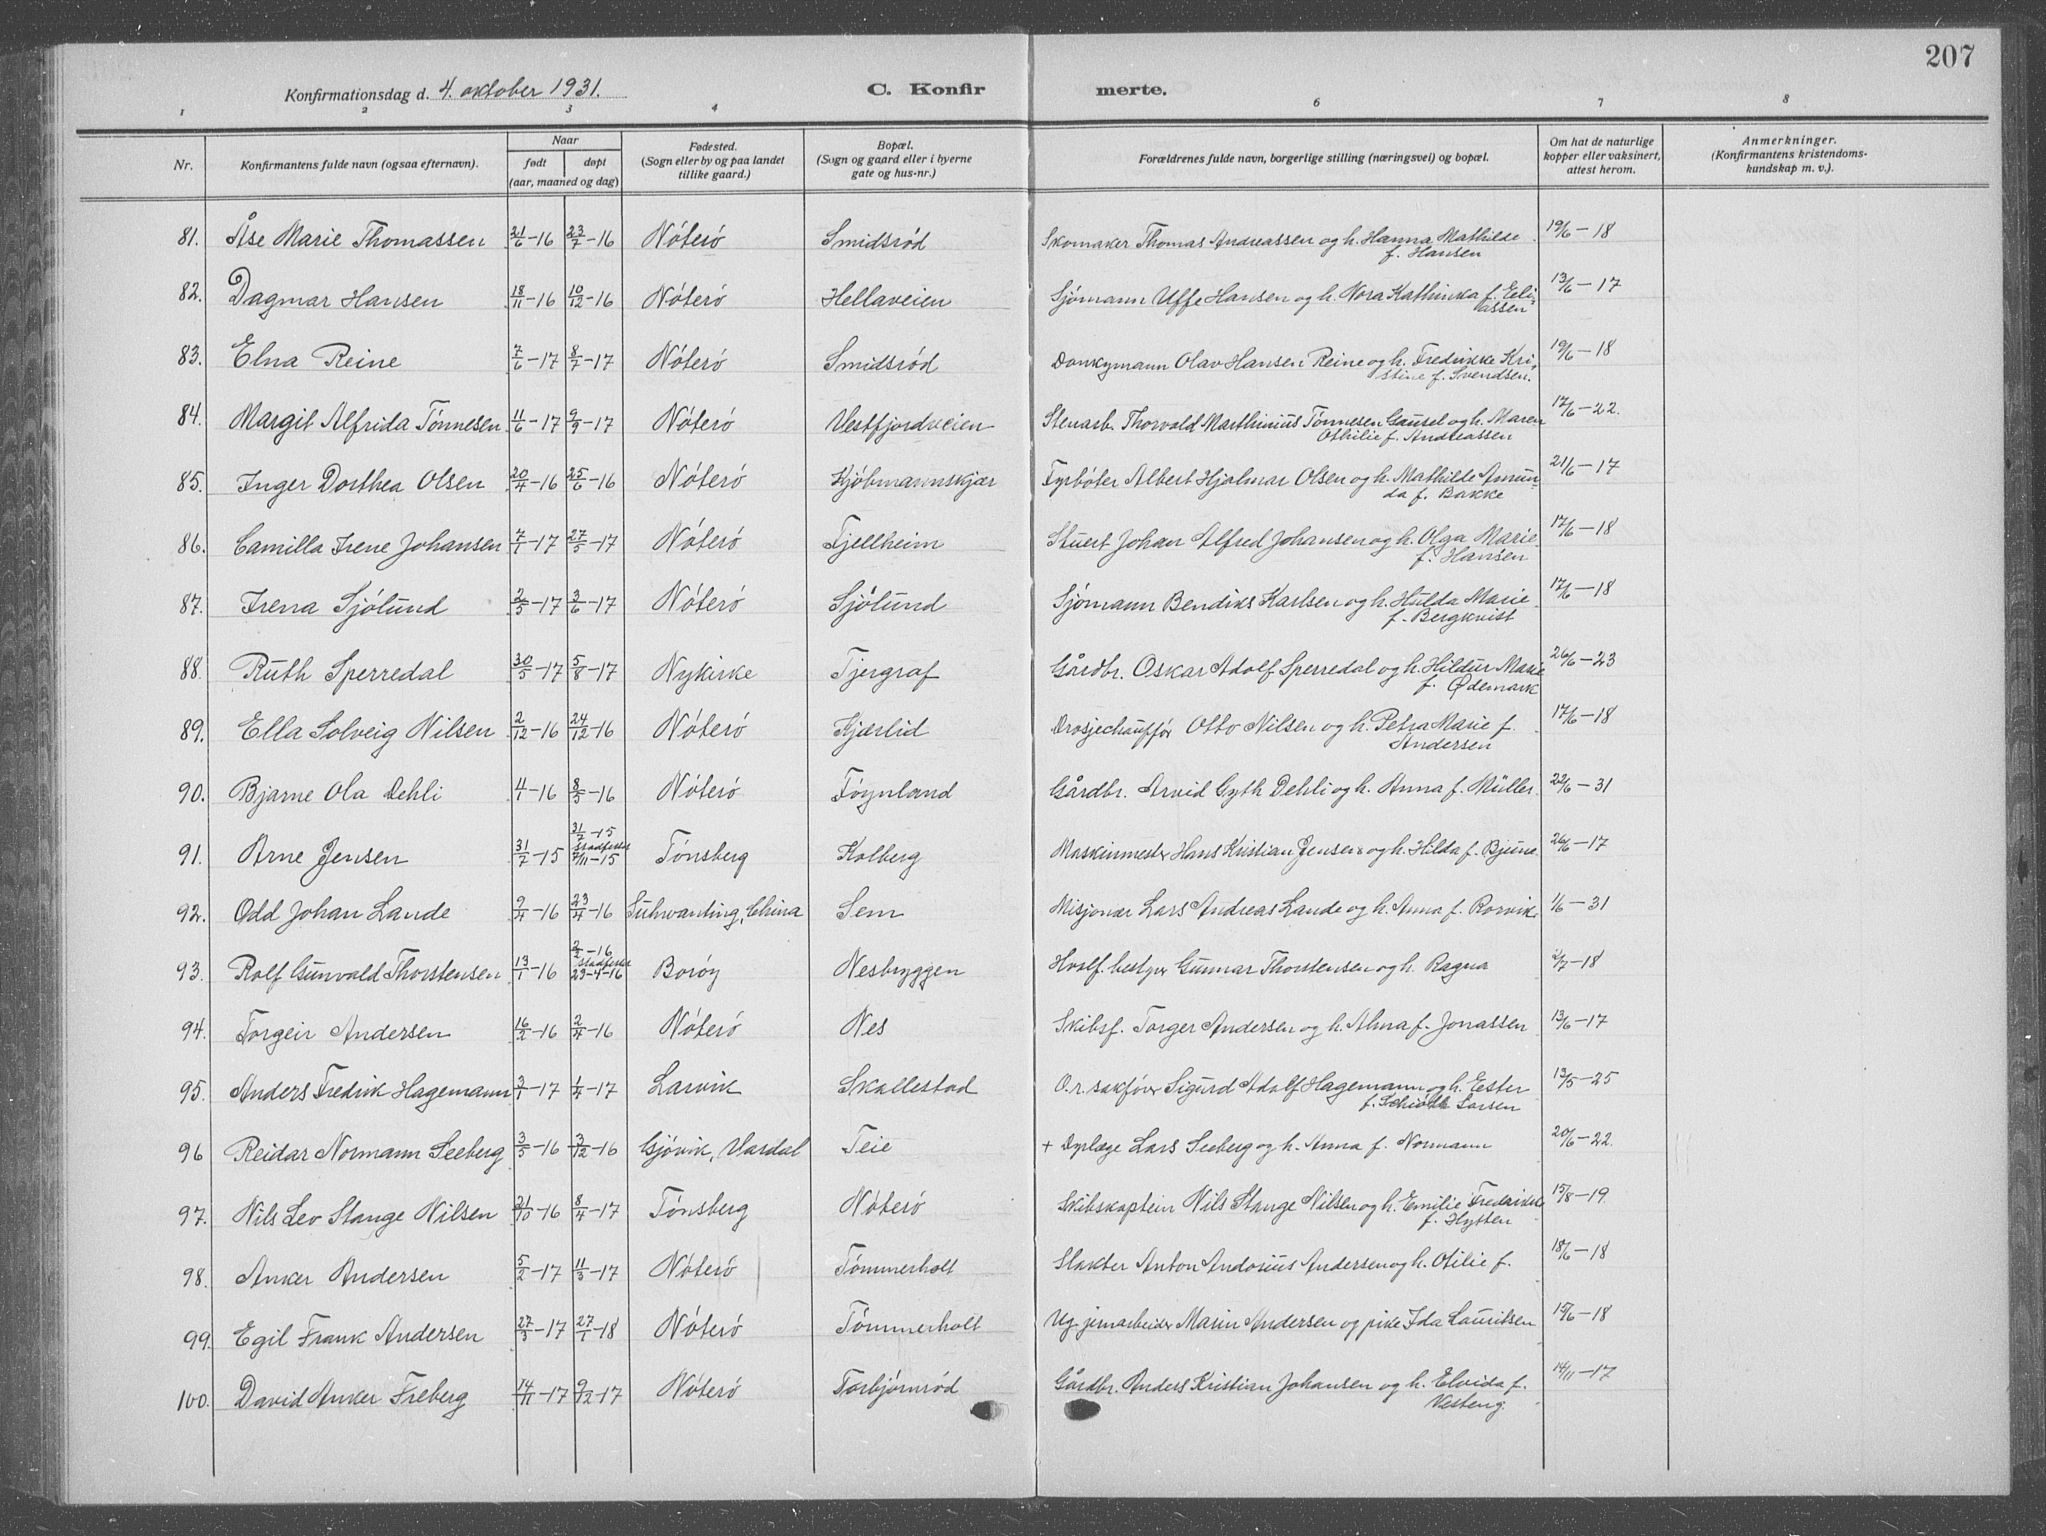 207
Konfirmationsdag d. 4. oktober 1931. C. Konfirmerte.
1 2 3 4 6 7 8
Nr. Konfirmantens fulde navn (ogsaa efternavn). Naar født døpt (aar, maaned og dag) Fødested. (Sogn eller by og paa landet tillike gaard.) Bopæl. (Sogn og gaard eller i byerne gate og hus-nr.) Forældrenes fulde navn, borgerlige stilling (næringsvei) og bopæl. Om hat de naturlige kopper eller vaksinert, attest herom. Anmerkninger. (Konfirmantens kristendomskundskap m. v.).
81. Åse Marie Thomassen 21/6-16 23/7-16 Nøterø Smidsrød Skomaker Thomas Andreassen og h. Hanna Mathilde f. Hansen 19/6-18
82. Dagmar Hansen 18/11-16 10/12-16 Nøterø Hellaveien Sjømann Uffe Hansen og h. Nora Kathinka f. Eeliassen 13/6-17
83. Elna Reine 7/6-17 8/7-17 Nøterø Smidsrød Donkymann Olav Hansen Reine og h. Fredrikke Kristine f. Svendsen. 19/6-18
84. Margit Alfrida Tønnesen 11/6-17 9/9-17 Nøterø Vestfjordveien Stenarb. Thorvald Marthinius Tønnesen Gausel og h. Maren Othilie f. Andreassen 17/6-22.
85. Inger Dorthea Olsen 20/4-16 25/6-16 Nøterø Kjøbmannskjær Fyrbøter Albert Hjalmar Olsen og h. Mathilde Amunda f. Bakke 21/6-17
86. Camilla Irene Johansen 7/1-17 27/5-17 Nøterø Fjellheim Stuert Johan Alfred Johansen og h. Olga Marie f. Hansen 17/6-18
87. Irena Sjølund 2/5-17 3/6-17 Nøterø Sjølund Sjømann Bendiks Karlsen og h. Hulda Marie f. Bergkvist 17/6-18
88. Ruth Sperredal 30/5-17 5/8-17 Nykirke Tjergraf Gårdbr. Oskar Adolf Sperredal og h. Hildur Marie f. Ødemark 26/6-23
89. Ella Solveig Nilsen 2/12-16 24/12-16 Nøterø Kjærlid Drosjechauffør Otto Nilsen og h. Petra Marie f. Andersen 17/6-18
90. Bjarne Ola Dehli 4/1-16 8/5-16 Nøterø Føynland Gårdbr. Arvid Gyth Dehli og h. Anna f. Müller 22/6-31
91. Arne Jensen 31/7-15 31/7-15 stadfestet 7/11-15 Tønsberg Kolberg Maskinmester Hans Kristian Jensen og h. Hilda f. Bjune 26/6-17
92. Odd Johan Lande 9/4-16 23/4-16 Suhwanting, China Sem Misjonær Lars Andreas Lande og h. Anna f. Rorvik 1/6-31
93. Rolf Gunvald Thorstensen 13/1-16 2/2-16 stadfestet 23-4-16 Borøy Nesbryggen Hvalf. bestyrer Gunnar Thorstensen og h. Ragna 2/7-18
94. Torgeir Andersen 16/2-16 2/4-16 Nøterø Nes Skibsf. Torger Andersen og h. Alma f. Jonassen 13/6-17
95. Anders Fredrik Hagemann 3/1-17 1/4-17 Larvik Skallestad O.r. sakfører Sigurd Adolf Hagemann og h. Ester f. Schiøth Larsen 13/5-25
96 Reidar Normann Seeberg 3/5-16 3/12-16 Gjøvik, Vardal Teie + Dyrlæge Lars Seeberg og h. Anna f. Normann 20/6-22.
97. Nils Lev Stange Nilsen 21/10-16 8/4-17 Tønsberg Nøterø Skibskaptein Nils Stange Nilsen og h. Emilie Fredrikke f. Hytten 15/8-19
98. Anker Andersen 5/2-17 11/3-17 Nøterø Tømmerholt Slakter Anton Andorius Andersen og h. Otilie f. 18/6-18
99. Egil Frank Andersen 27/3-17 27/1-18 Nøterø Tømmerholt Ug. jernarbeider Marin Andersen og pike Ida Lauritsen 15/6-18
100. David Anker Freberg 14/11-17 9/12-17 Nøterø Torbjørnrød Gårdbr. Anders Kristian Johansen og h. Elvida f. Vesteng. 14/11-17